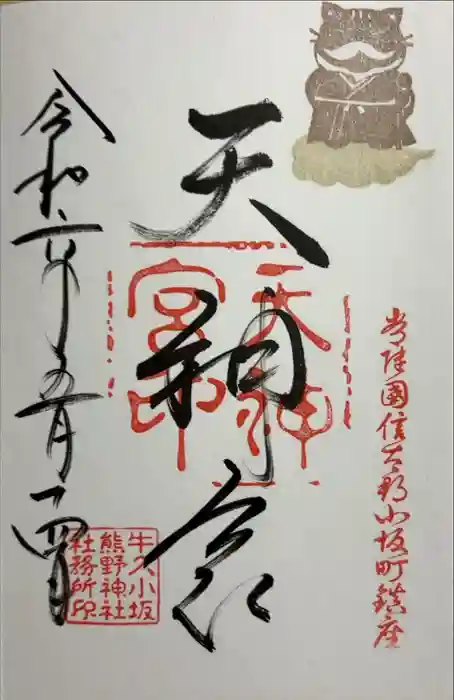 常陸國信太郡小坂町鎮座
天神宮
天神
宮印
令和六年五月十四日
牛久小坂
熊野神社
社務所印